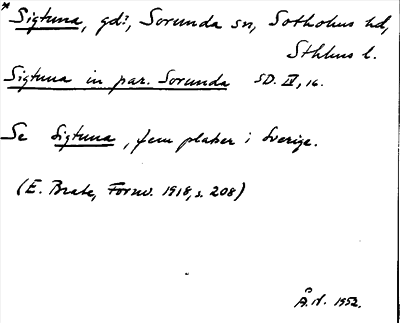 * Sigtuna, gd?, Sorunda sn, Sotholms hd,
Sthlms l.
Sigtuna in par. Sorunda SD. IV, 16.
Se Sigtuna, fem platser i Sverige.
(E. Brate, Fornv. 1918, s. 208)
Å. N. 1952.